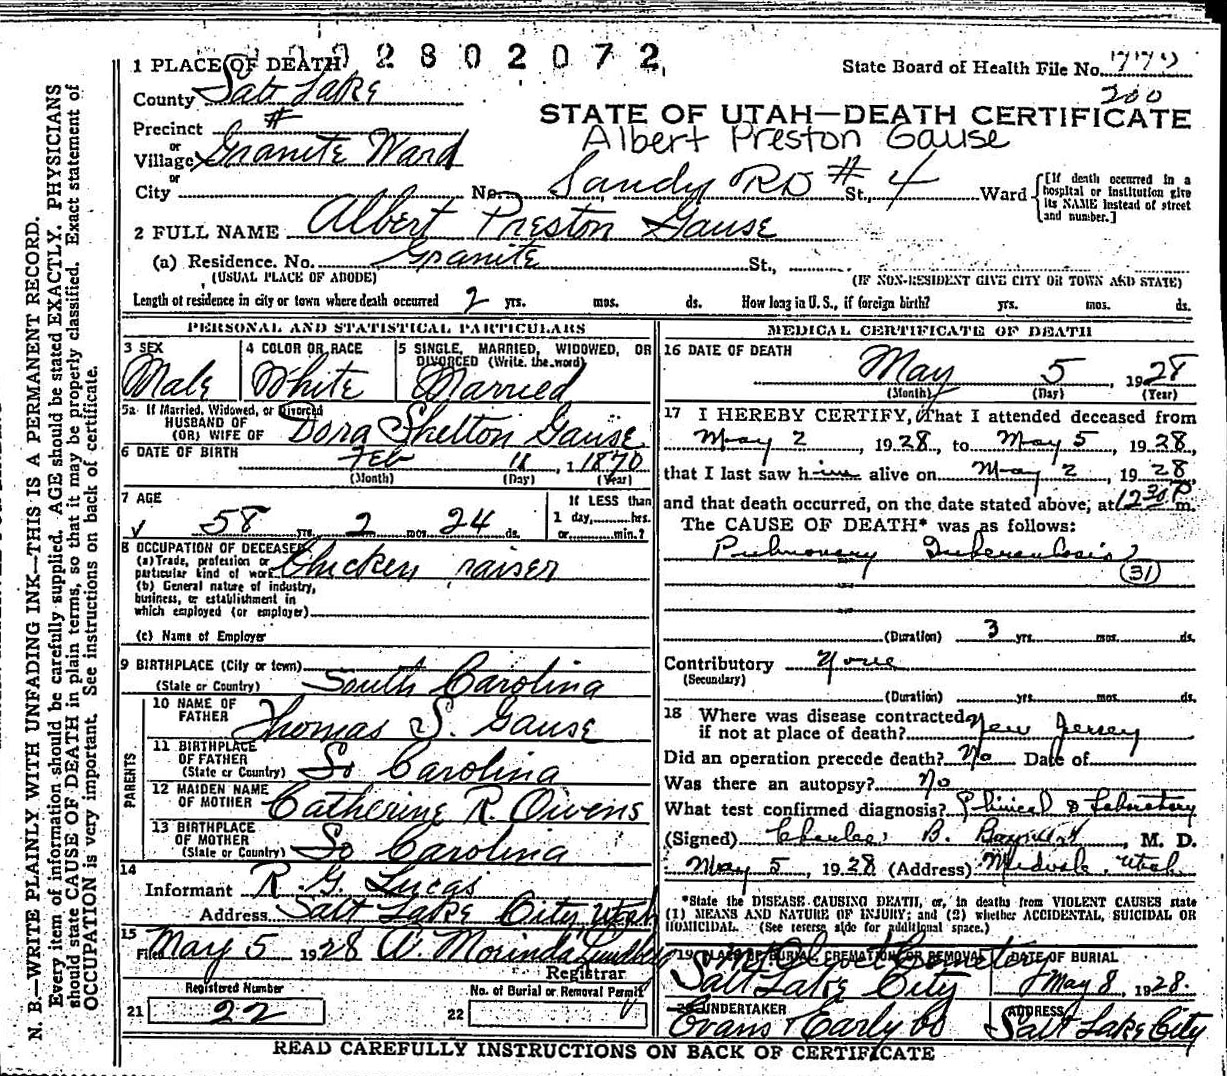 2802072
1 PLACE OF DEATH
State Board of Health File No. 770
200
County Salt Lake
STATE OF UTAH—DEATH CERTIFICATE
Precinct #
Albert Preston Gause
or
Village Granite Ward
or
City No. Sandy RD # 4 St., Ward
[If death occurred in a hospital or institution give its NAME instead of street and number.]
2 FULL NAME Albert Preston Gause
(a) Residence. No. Granite St.,
(USUAL PLACE OF ABODE) (IF NON-RESIDENT GIVE CITY OR TOWN AND STATE)
Length of residence in city or town where death occurred 2 yrs. mos. ds. How long in U.S., if foreign birth? yrs. mos. ds.
PERSONAL AND STATISTICAL PARTICULARS
3 SEX Male
4 COLOR OR RACE White
5 SINGLE, MARRIED, WIDOWED, OR DIVORCED (Write the word) Married
5a If Married, Widowed, or Divorced
HUSBAND OF
(OR) WIFE OF Dora Shelton Gause
6 DATE OF BIRTH Feb 11, 1 1870
(Month) (Day) (Year)
7 AGE
58 yrs. 2 mos. 24 ds.
If LESS than
1 day, hrs.
or min.?
8 OCCUPATION OF DECEASED
(a) Trade, profession or
particular kind of work Chicken raiser
(b) General nature of industry,
business, or establishment in
which employed (or employer)
(c) Name of Employer
9 BIRTHPLACE (City or town)
(State or Country) South Carolina
PARENTS
10 NAME OF FATHER Thomas S. Gause
11 BIRTHPLACE OF FATHER
(State or Country) So Carolina
12 MAIDEN NAME OF MOTHER Catherine R. Owens
13 BIRTHPLACE OF MOTHER
(State or Country) So Carolina
14
Informant R. G. Lucas
Address Salt Lake City, Utah
15
Filed May 5 1928 A. Morinda
Registrar
Registered Number
21 22
No. of Burial or Removal Permit
22
MEDICAL CERTIFICATE OF DEATH
16 DATE OF DEATH
May 5, 1928
(Month) (Day) (Year)
17 I HEREBY CERTIFY, That I attended deceased from
May 2, 1928, to May 5, 1928,
that I last saw him alive on May 2, 1928
and that death occurred, on the date stated above, at 12 30 P m.
The CAUSE OF DEATH* was as follows:
Pulmonary Tuberculosis
(31)
(Duration) 3 yrs. mos. ds.
Contributory None
(Secondary)
(Duration) yrs. mos. ds.
18 Where was disease contracted
if not at place of death? New Jersey
Did an operation precede death? No Date of
Was there an autopsy? No
What test confirmed diagnosis? Clinical & Laboratory
(Signed) Charles B. M. D.
May 5, 1928 (Address) Midvale, Utah
*State the DISEASE CAUSING DEATH, or, in deaths from VIOLENT CAUSES state
(1) MEANS AND NATURE OF INJURY; and (2) whether ACCIDENTAL, SUICIDAL OR
HOMICIDAL. (See reverse side for additional space.)
19 PLACE OF BURIAL, CREMATION OR REMOVAL Mt Olivet Cemetery
Salt Lake City
DATE OF BURIAL
May 8, 1928.
20 UNDERTAKER
Evans & Early Co
ADDRESS
Salt Lake City
READ CAREFULLY INSTRUCTIONS ON BACK OF CERTIFICATE
N. B.—WRITE PLAINLY WITH UNFADING INK—THIS IS A PERMANENT RECORD.
Every item of information should be carefully supplied. AGE should be stated EXACTLY. PHYSICIANS
should state CAUSE OF DEATH in plain terms, so that it may be properly classified. Exact statement of
OCCUPATION is very important. See instructions on back of certificate.